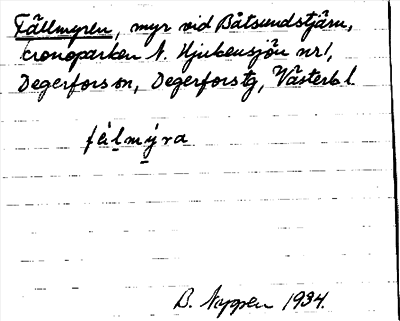 Fällmyren, myr vid Båtsundstjärn,
kronoparken N. Hjukensjön nr 1,
Degerfors sn, Degerfors tg, Västerb. l.
B. Nyggren 1934.